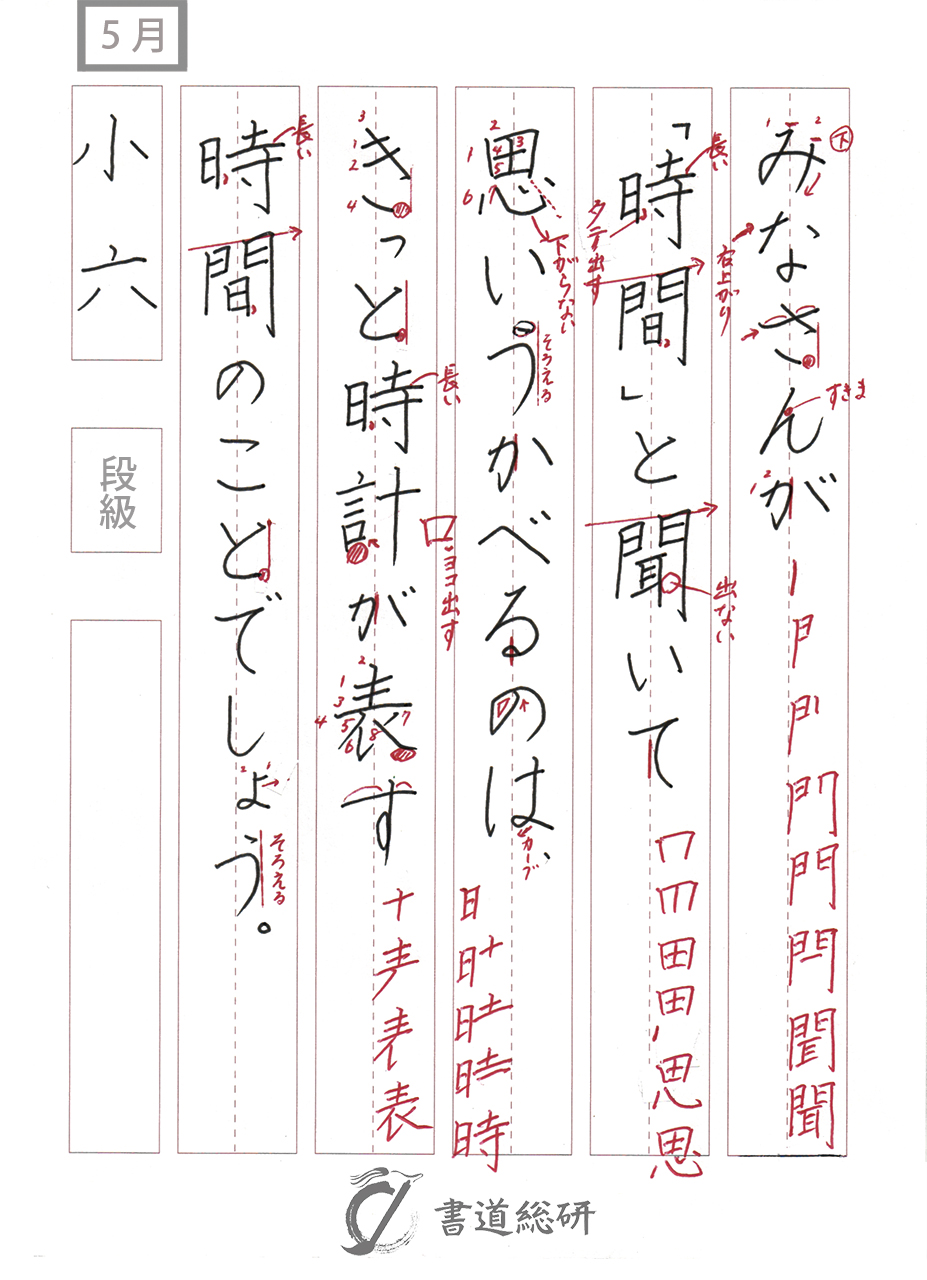 5月
みなさんが
下
右上がり
すきま
丨 門 門 門 聞 聞
「時間」と聞いて
長い
タテ出す
出ない
田 田 思 思
思いうかべるのは、
下がらない
そろえる
カーブ
日 時
きっと時計が表す
長い
口ヨコ出す
十 表 表
時間のことでしょう。
長い
そろえる
小六
段級
書道総研